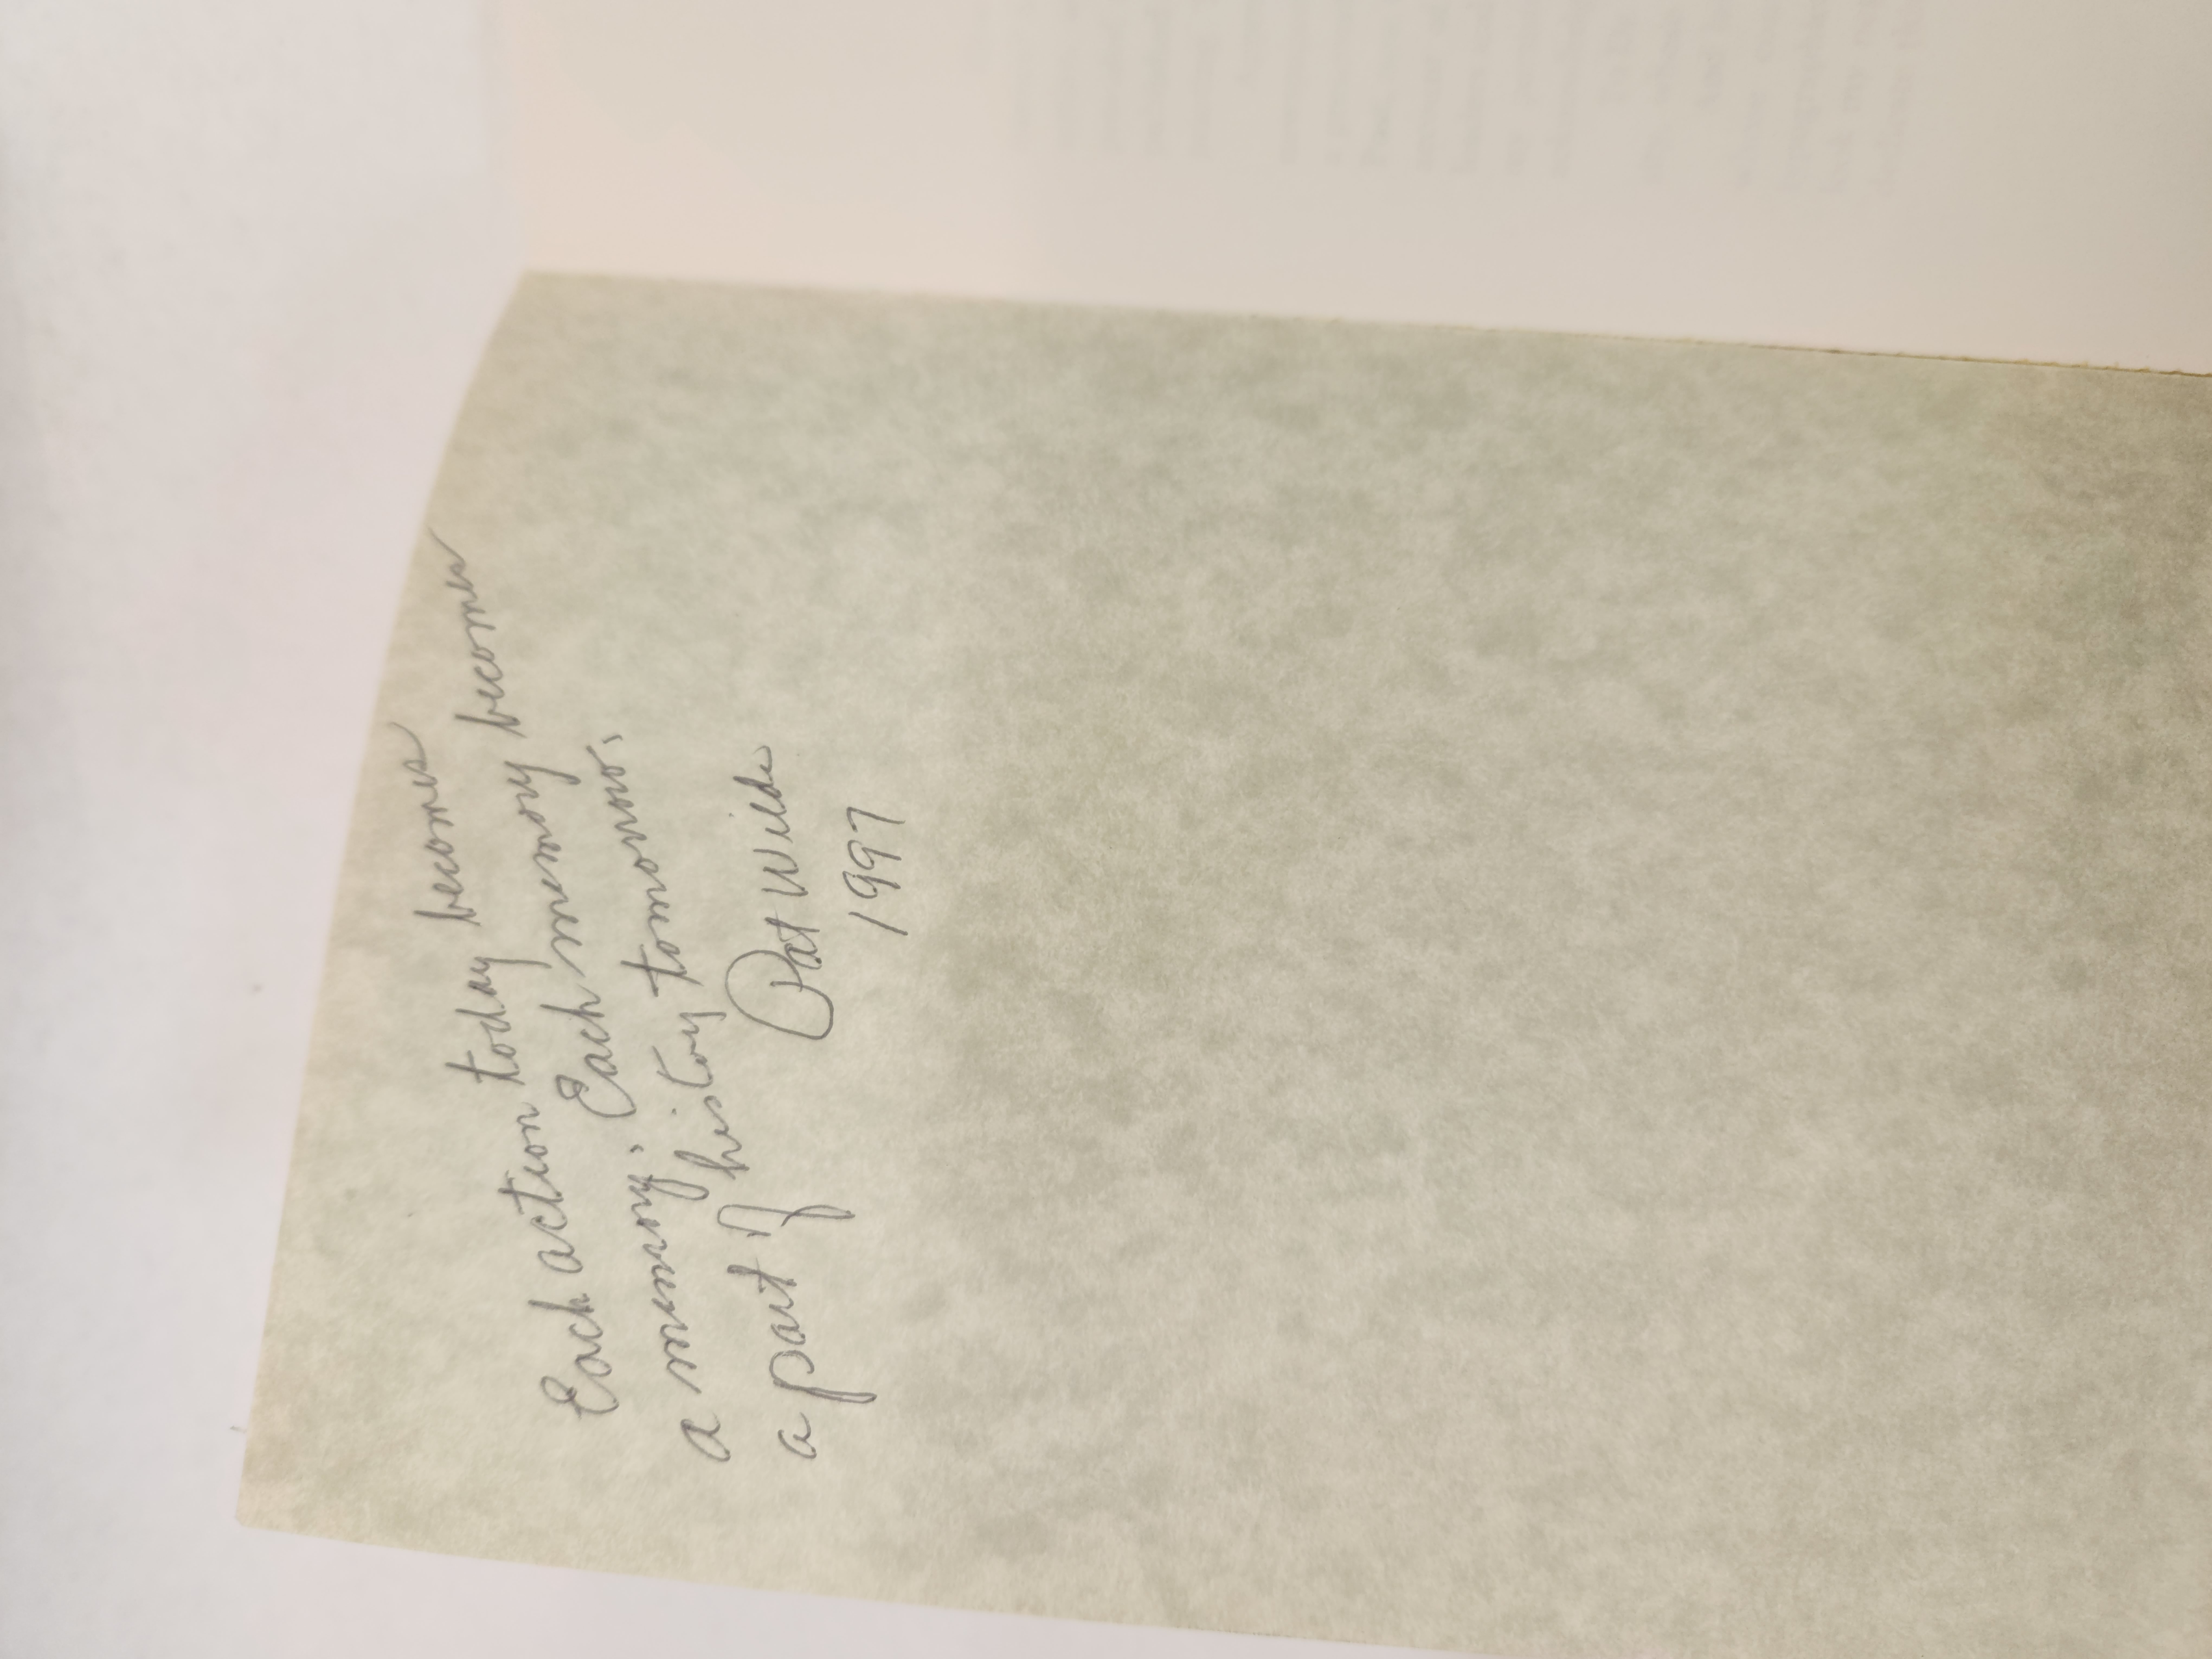 Each action today becomes
a memory. Each memory becomes
a part of history tomorrow.
Pat Wilde
1997